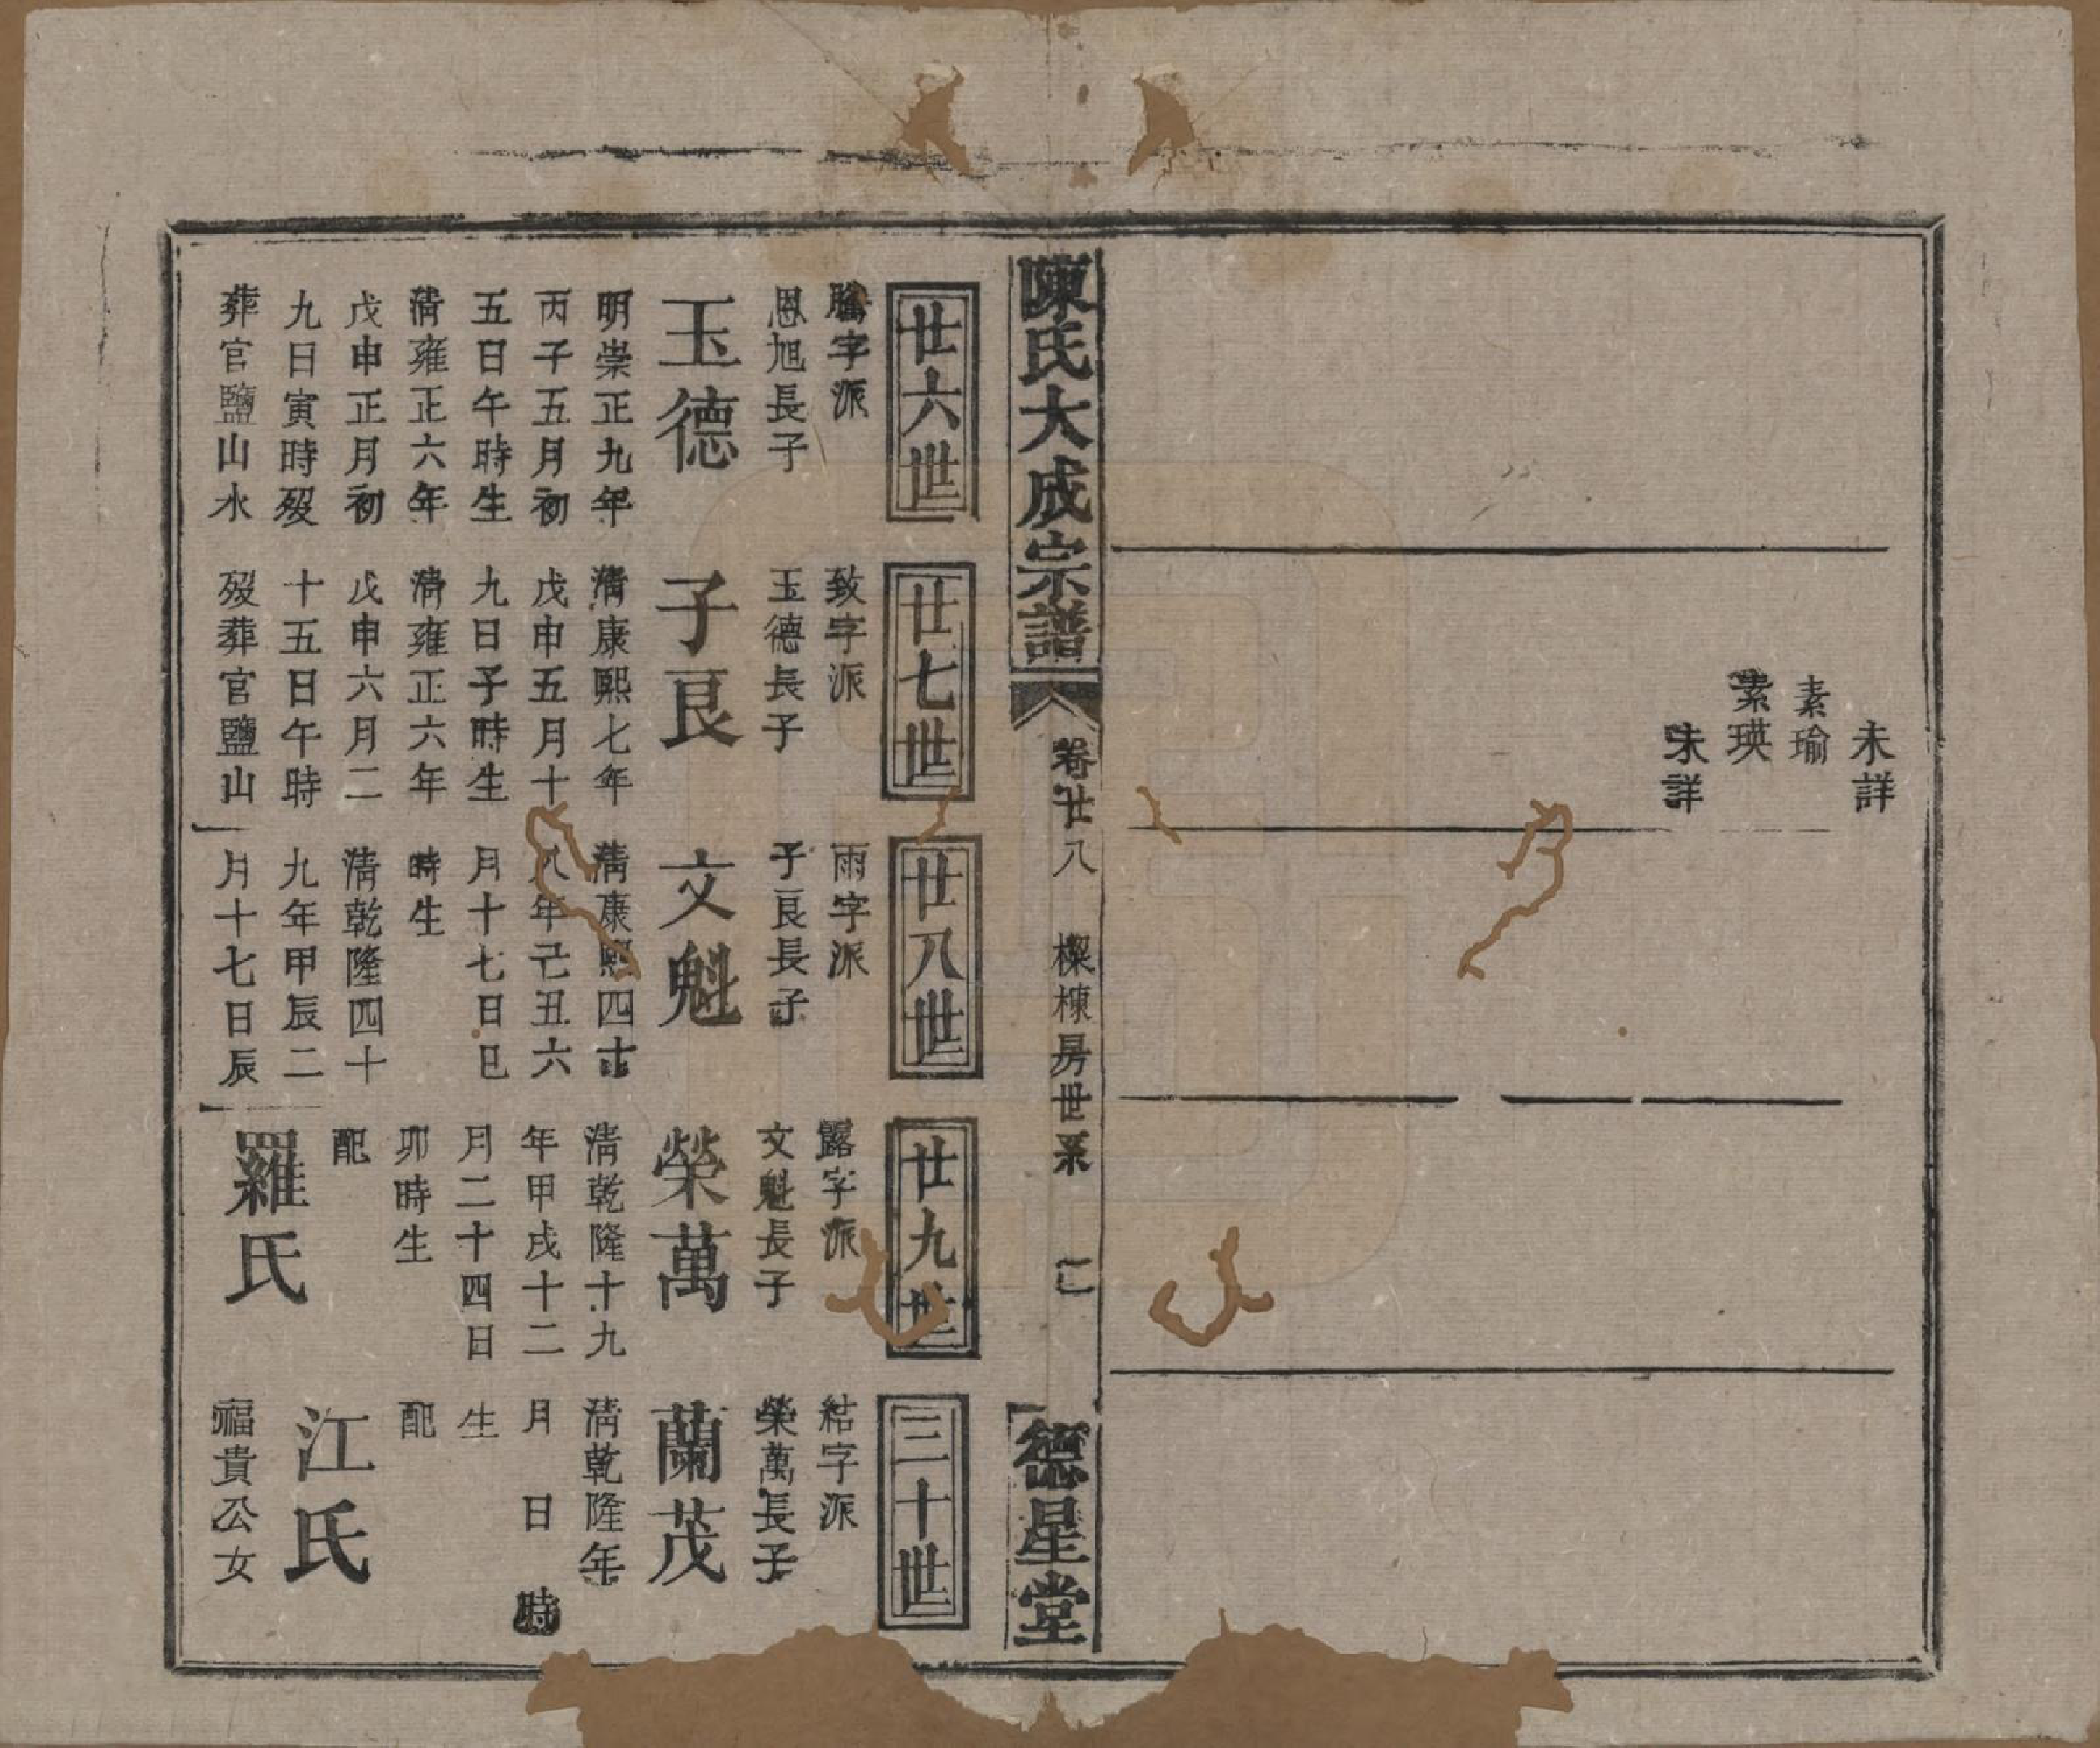 未詳
素瑜
素瑛
未詳
陳氏大成宗譜
卷廿八
棟房世系
德星堂
廿六世
騰字派
恩旭長子
玉德
明崇正九年
丙子五月初
五日午時生
清雍正六年
戊申正月初
九日寅時歿
葬官鹽山水
廿七世
致字派
玉德長子
子良
清康熙七年
戊申五月十
九日子時生
清雍正六年
戊申六月二
十五日午時
歿葬官鹽山
廿八世
雨字派
子良長子
文魁
清康熙四十
八年己丑六
月十七日巳
時生
清乾隆四十
九年甲辰二
月十七日辰
廿九世
露字派
文魁長子
榮萬
清乾隆十九
年甲戌十二
月二十四日
卯時生
配
羅氏
三十世
結字派
榮萬長子
蘭茂
清乾隆年
月 日 時
生
配
江氏
福貴公女